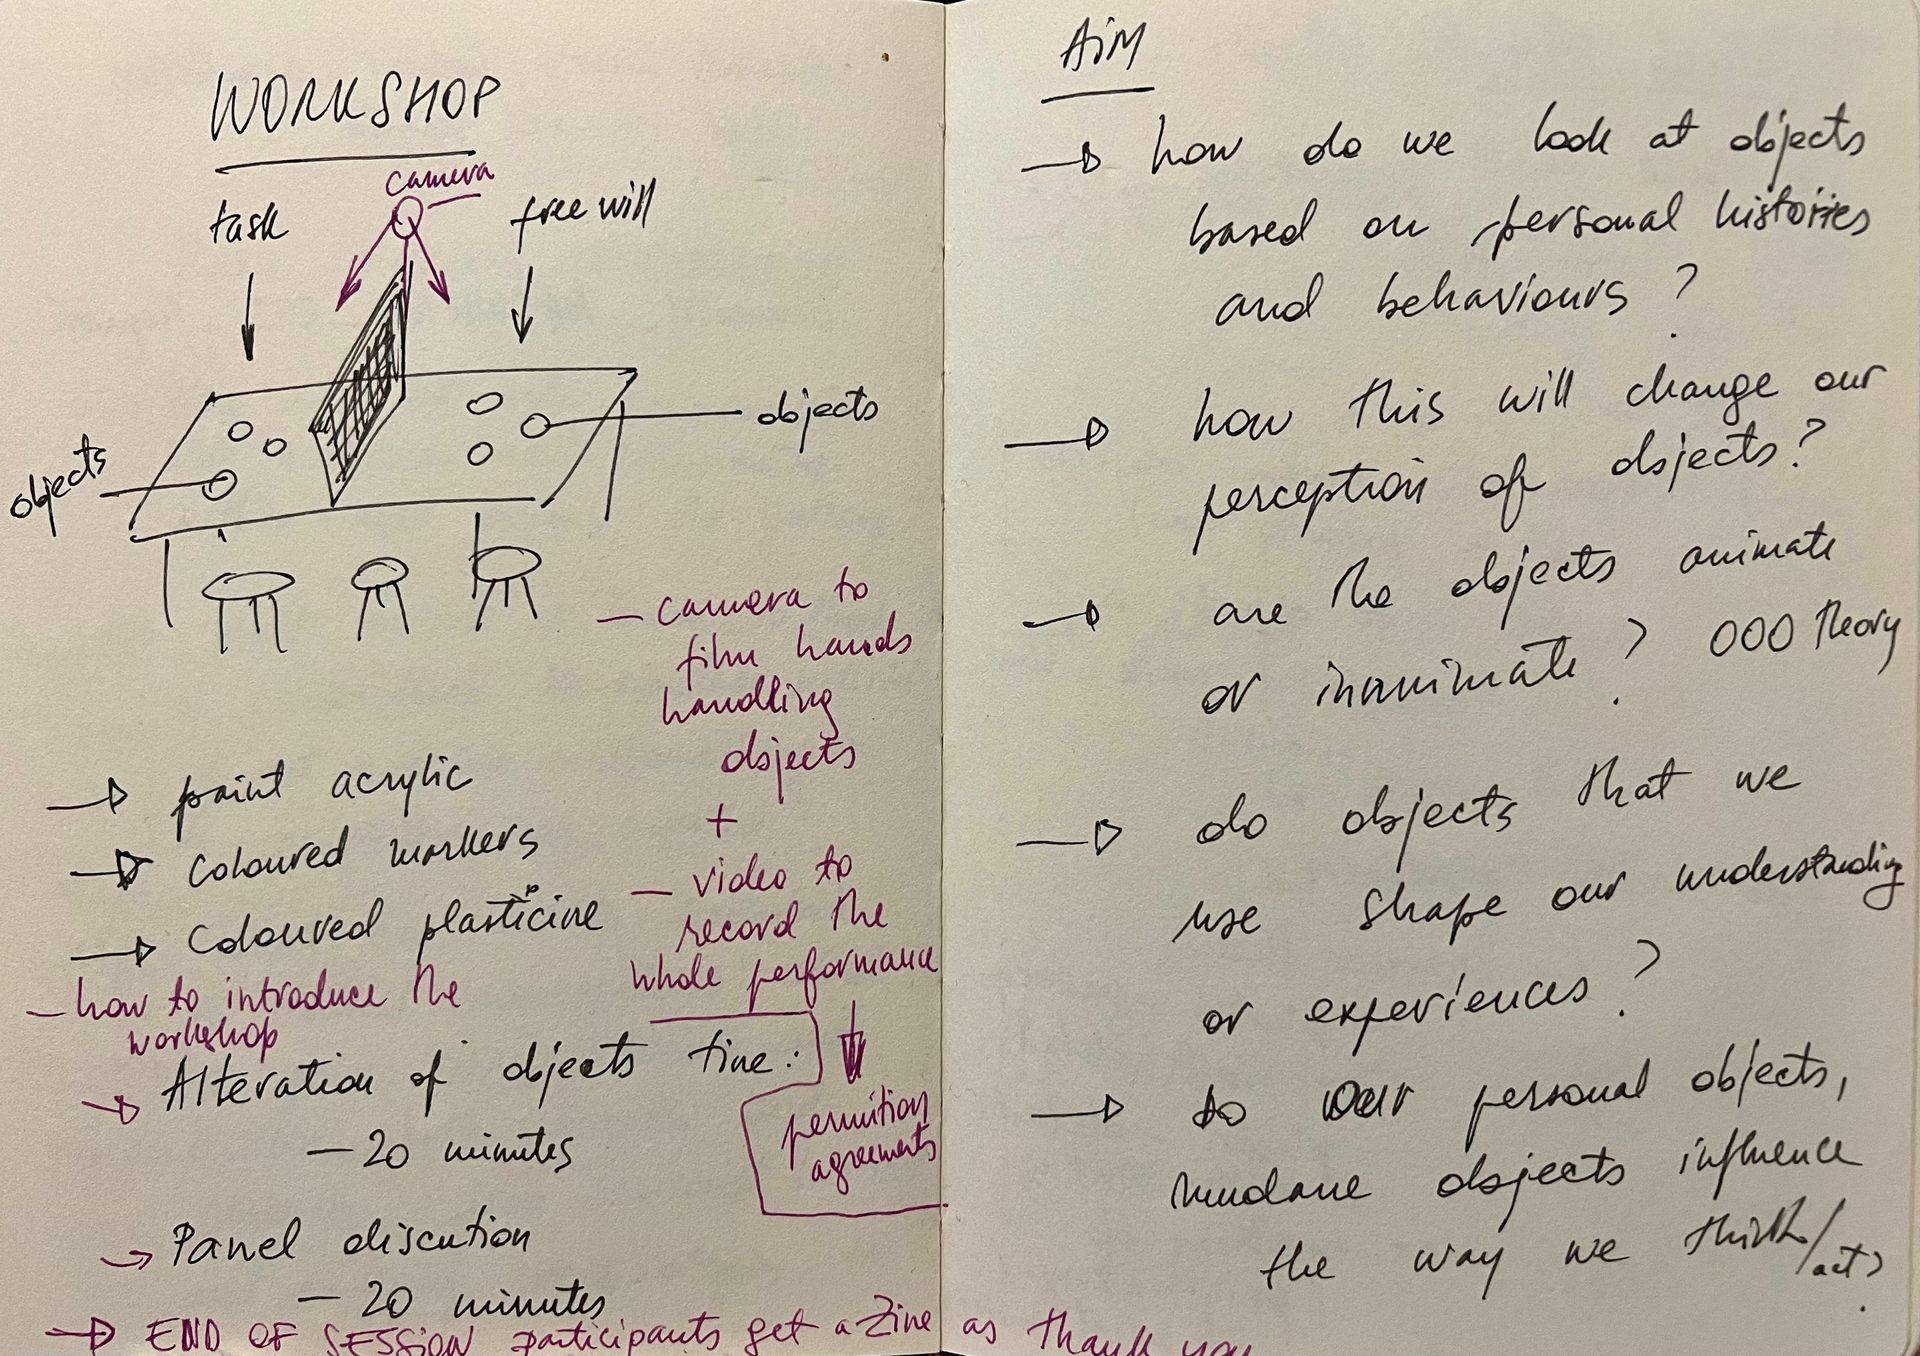 WORKSHOP
camera
task
free will
objects
objects
– camera to
film hands
handling
objects
+
– video to
record the
whole performance
permition
agreements
paint acrylic
coloured markers
coloured plasticine
– how to introduce the
workshop
Alteration of objects time:
– 20 minutes
Panel discution
– 20 minutes
END OF SESSION participants get a Zine as thank you
AIM
how do we look at objects
based on personal histories
and behaviours?
how this will change our
perception of objects?
are the objects animate
or inanimate? OOO theory
do objects that we
use shape our understanding
or experiences?
do our personal objects,
mundane objects influence
the way we think/act?